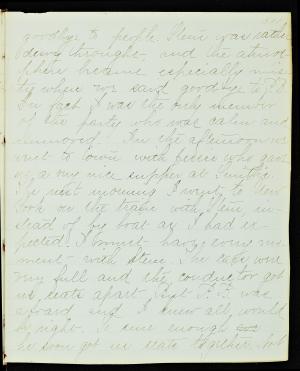 goodbye to people. Stein was rather
down throught, and the atmos-
phere became especially mis-
ty when we said goodbye to
In fact I was the only member
of the party who was calm and
unmoved! In the afternoon we
went to town with who gave
us a very nice supper at
The next morning I went to New
York on the train with Stein, in-
stead of by boat as I had ex-
pected. I enjoyed every mo-
ment with Stein. The cars were
very full and the conductor got
us seats apart. But F. F. was
aboard and I knew all would
be right. Sure enough
he soon got us seats together, but